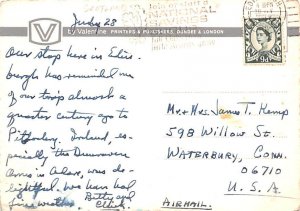 July 23
by Valentine PRINTERS & PUBLISHERS, DUNDEE & LONDON
Our stop here in Edin-
burgh has reminded me
of our trip almost a
quarter century ago to
Pitlochry. Indeed, es-
pecially the Dunvear
Arms in Adair, was de-
lightful. We have had
fine weather. Betty and
Chick
9d
Mr. + Mrs. James T. Kemp
598 Willow St.
WATERBURY, CONN.
06710
U. S. A
AIRMAIL.